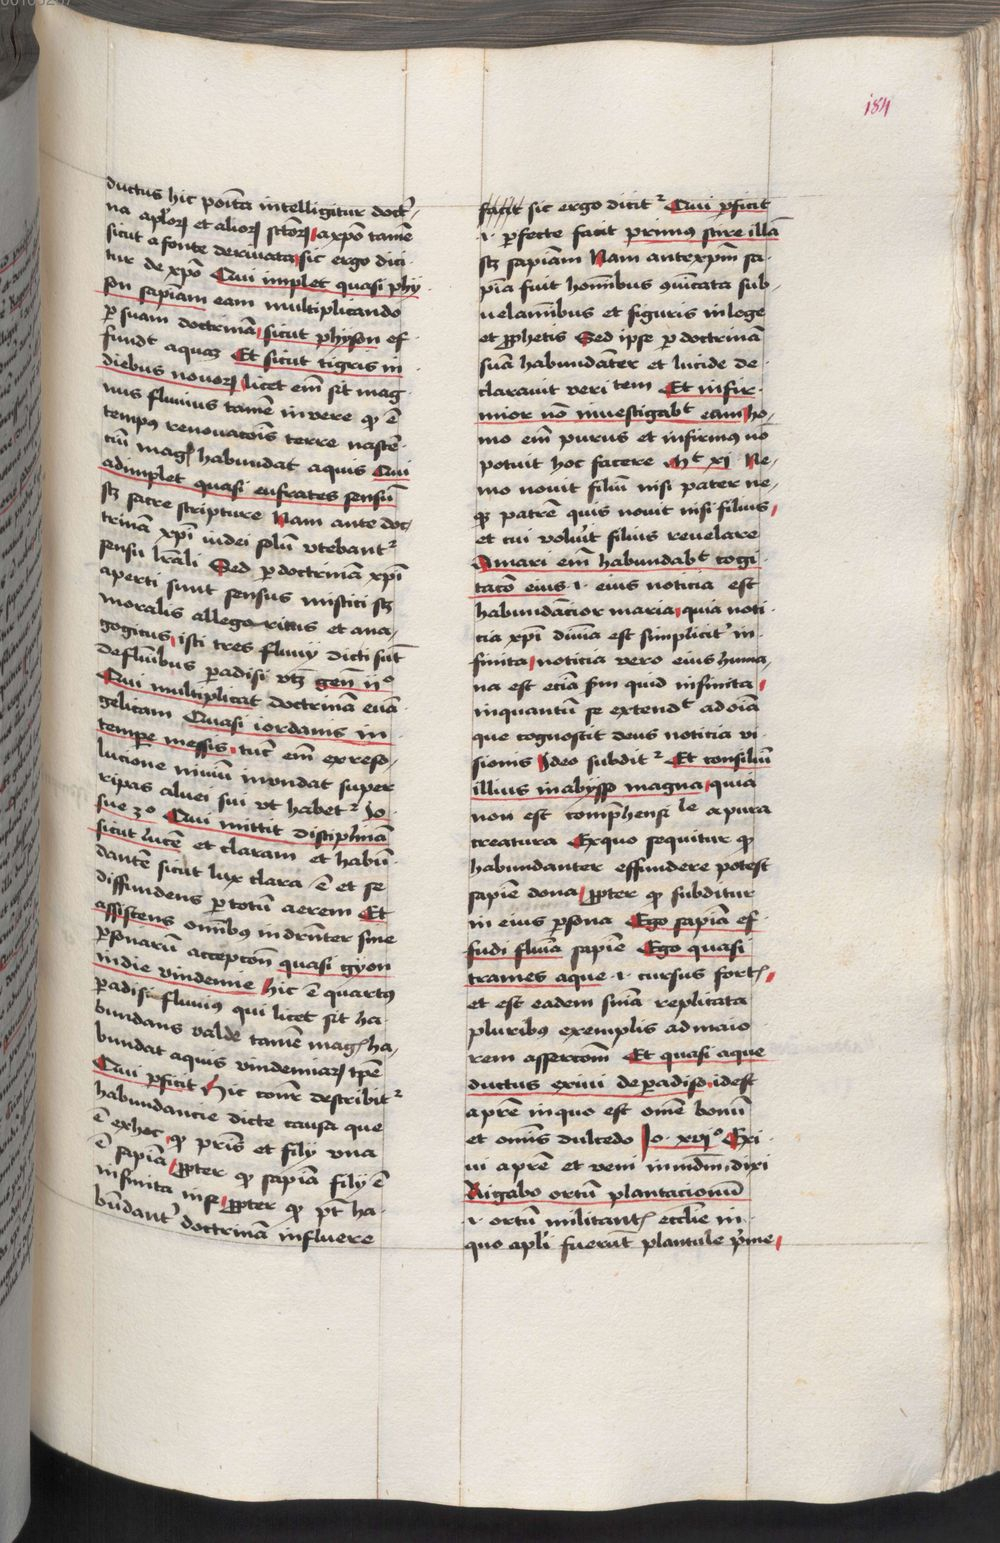 184
ductus hic poita intelligitur doct᷑
na aplor et alior sctor a xpo tame
sicut a fonte derivata sic ergo dici
tur de xpo Qui implet quasi phy
son sapiam eam multiplicando
p suam doctrina sicut physon ef
fundt aquas Et sicut tigris in
diebus novor licet em sit mag
nus fluvius tame in vere q e
tempus renovatois terre nascē
tiu mag habundat aquis Qui
adimplet quasi eufrates sensu
sz sacre scripture Nam ante doc
trina xpi iudei solu utebant
sensu lrali Sed p doctrina xpi
aperti sunt sensus mistici sz
moralis allegoricus et ana
gogicus isti tres fluvy dicti sut
de fluibus padisi utz gen ii°
Qui multiplicat doctrina eua
gelicam Quasi iordanis in
tempe messis tuc em ex reso
lucione niuiu inundat super
ripas aluei sui ut habet Jo
sue 3° Qui mittit disciplina
sicut luce et claram et habu
dante sicut lux clara e et se
diffundens p totu aerem Et
assistens omibus indrnter sine
psonaru accepcon quasi gyon
in die vindemie Hic e quartus
padisi fluuius qui licet sit ha
bundans valde tame mag ha
bundat aquis vindemiar tpe
Qui pficit Hic conr describit
habundancie dicte causa que
e ex hoc q pris et fily vna
e sapia ppter q sapia fily e
infinita in se ppter q pt ha
bundant doctrina influere
facit sic ergo dicit Qui pficit
.i. pfecte facit primus scire illa
sz sapiam Nam ante xpm sa
pia fuit homibus coicata sub
uelamibus et figuris in lege
et pphetis Sed ipse p doctrina
sua habundater et lucide de
clarauit veritem Et infir
mior no inuestigabt eam ho
mo em purus et infirmus no
potuit hoc facere Mt xi Ne
mo nouit filiu nisi pater ne
q patre quis nouit nisi filius
et cui voluit filius reuelare
A mari em habundabt cogi
taco eius .i. eius noticia est
habundacior maria quia noti
cia xpi diuia est simplicit in
finita noticia vero eius huma
na est ecia sm quid infinita
inquantu se extendt ad oia
que cognoscit deus noticia vi
sionis Ideo subdit Et consiliu
illius in abysso magna quia
non est comphensi le a pura
creatura Ex quo sequitur q
habundanter effundere potest
sapie dona ppter q subditur
in eius psona Ego sapia ef
fudi fluia sapie Ego quasi
trames aque .i. cursus fort
et est eadem snia replicata
pluribus exemplis ad maio
rem assercom Et quasi aque
ductus exiui de padiso idest
a pre in quo est ome bonu
et omis dulcedo Jo xvi° Exi
ui a pre et veni in mdm dixi
Rigabo ortu plantacionu
.i. ortu militant ecclie in
quo apli fuerut plantule pme